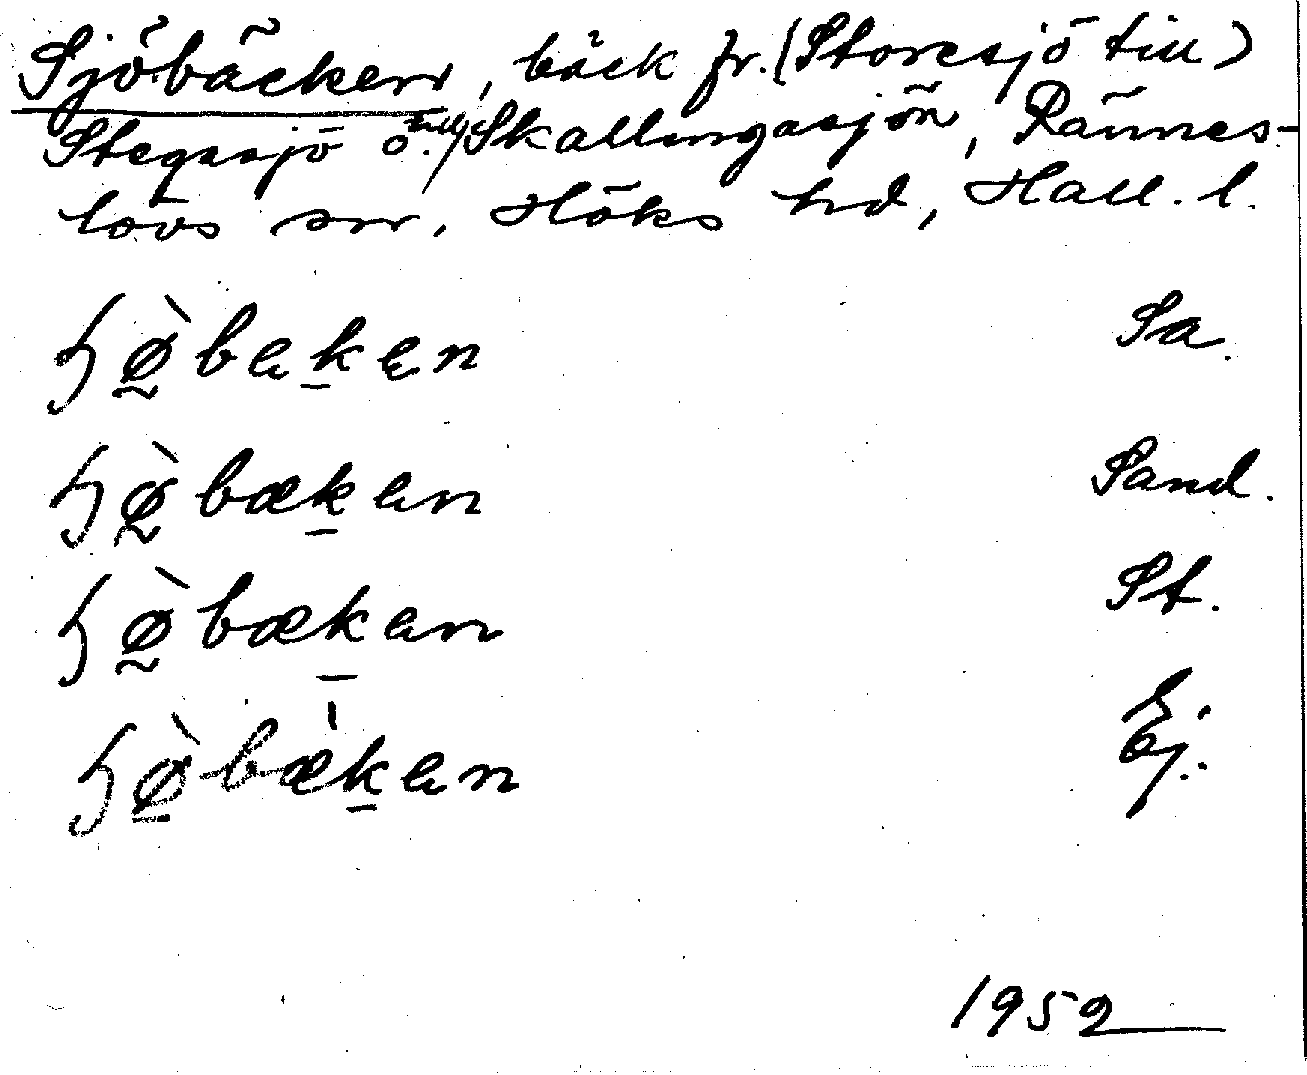 Sjöbäcken, bäck fr. (Storesjö till)
Stegasjö o. till Skallingasjön, Rännes-
lövs sn, Höks hd, Hall. l.
ɧø̀bękęn Sa.
ɧø̀bækan Sand.
ɧø̀bækan St.
ɧø̀bækan
1952